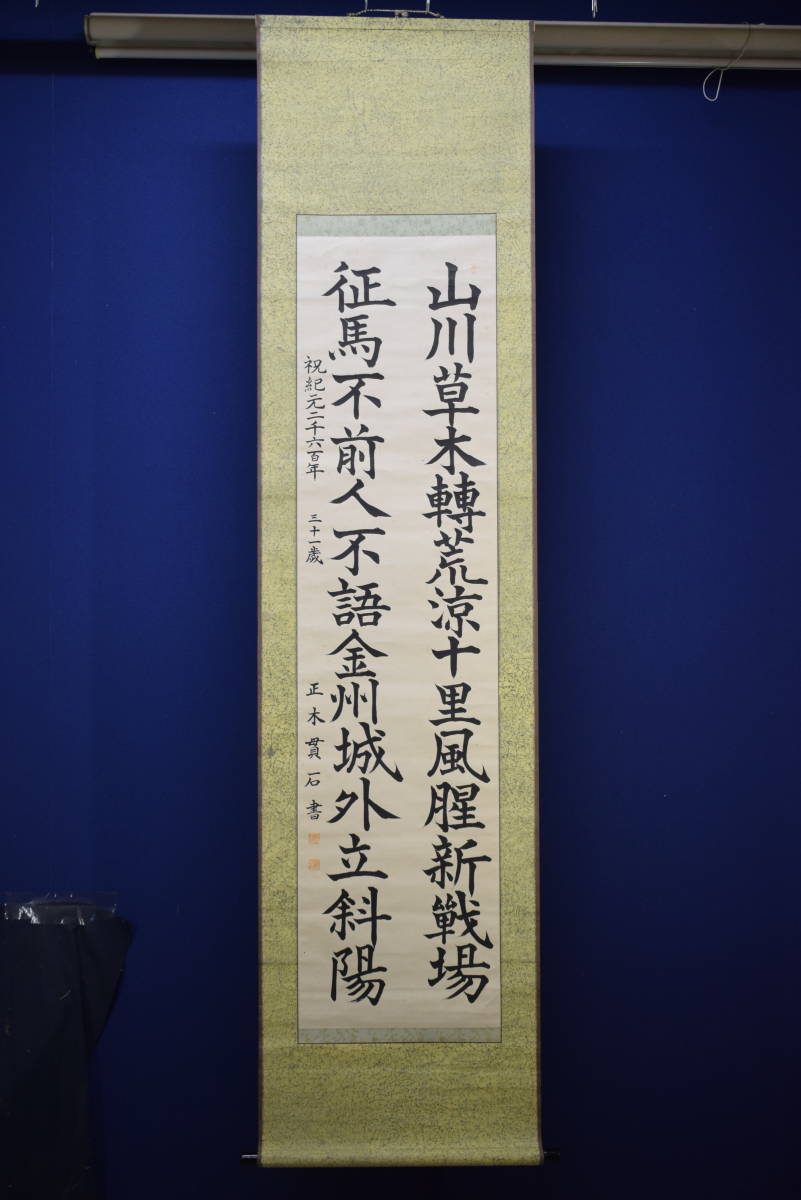 山川草木轉荒涼十里風腥新戰場
征馬不前人不語金州城外立斜陽
祝紀元二千六百年 三十一歲
正木貫石書